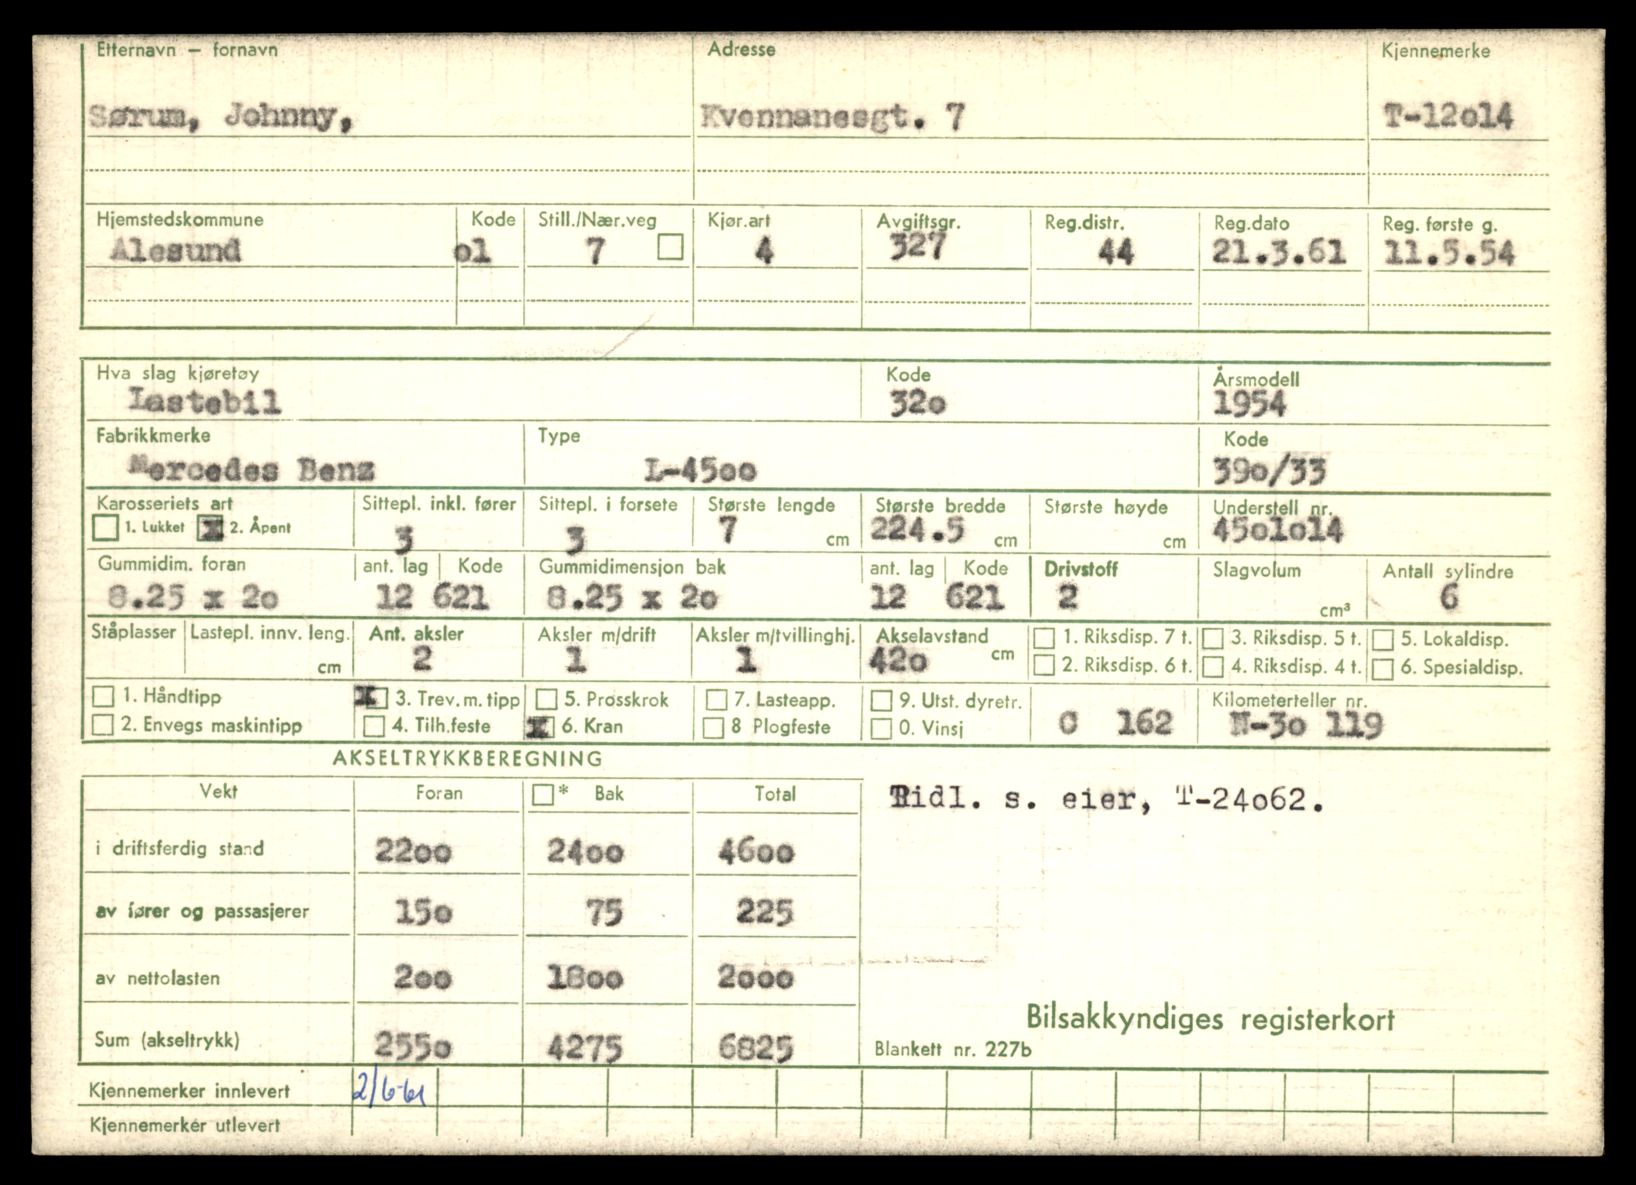 Etternavn — fornavn Adresse Kjennemerke
Sørum, Johnny, Kvennanesgt. 7 T-12o14
Hjemstedskommune Kode Still./Nær.veg Kjør.art Avgiftsgr. Reg.distr. Reg.dato Reg. første g.
Alesund o1 7 4 327 44 21.3.61 11.5.54
Hva slag kjøretøy Kode Årsmodell
Lastebil 32o 1954
Fabrikkmerke Type Kode
Mercedes Benz L-45oo 39o/33
Karosseriets art Sittepl. inkl. fører Sittepl. i forsete Største lengde Største bredde Største høyde Understell nr.
1. Lukket x 2. Åpent 3 3 7 cm 224.5 cm cm 45o1o14
Gummidim. foran ant. lag Kode Gummidimensjon bak ant. lag Kode Drivstoff Slagvolum Antall sylindre
8.25 x 2o 12 621 8.25 x 2o 12 621 2 cm³ 6
Ståplasser Lastepl. innv. leng. Ant. aksler Aksler m/drift Aksler m/tvillinghj. Akselavstand 1. Riksdisp. 7 t. 3. Riksdisp. 5 t. 5. Lokaldisp.
cm 2 1 1 42o cm 2. Riksdisp. 6 t. 4. Riksdisp. 4 t. 6. Spesialdisp.
1. Håndtipp x 3. Trev. m. tipp 5. Prosskrok 7. Lasteapp. 9. Utst. dyretr. Kilometerteller nr.
2. Envegs maskintipp 4. Tilh.feste x 6. Kran 8 Plogfeste 0. Vinsj 0 162 N-3o 119
AKSELTRYKKBEREGNING
Vekt Foran * Bak Total
Tidl. s. eier, T-24o62.
i driftsferdig stand 22oo 24oo 46oo
av fører og passasjerer 15o 75 225
av nettolasten 2oo 18oo 2ooo
Bilsakkyndiges registerkort
Sum (akseltrykk) 255o 4275 6825
Blankett nr. 227b
Kjennemerker innlevert 2/6-61
Kjennemerker utlevert